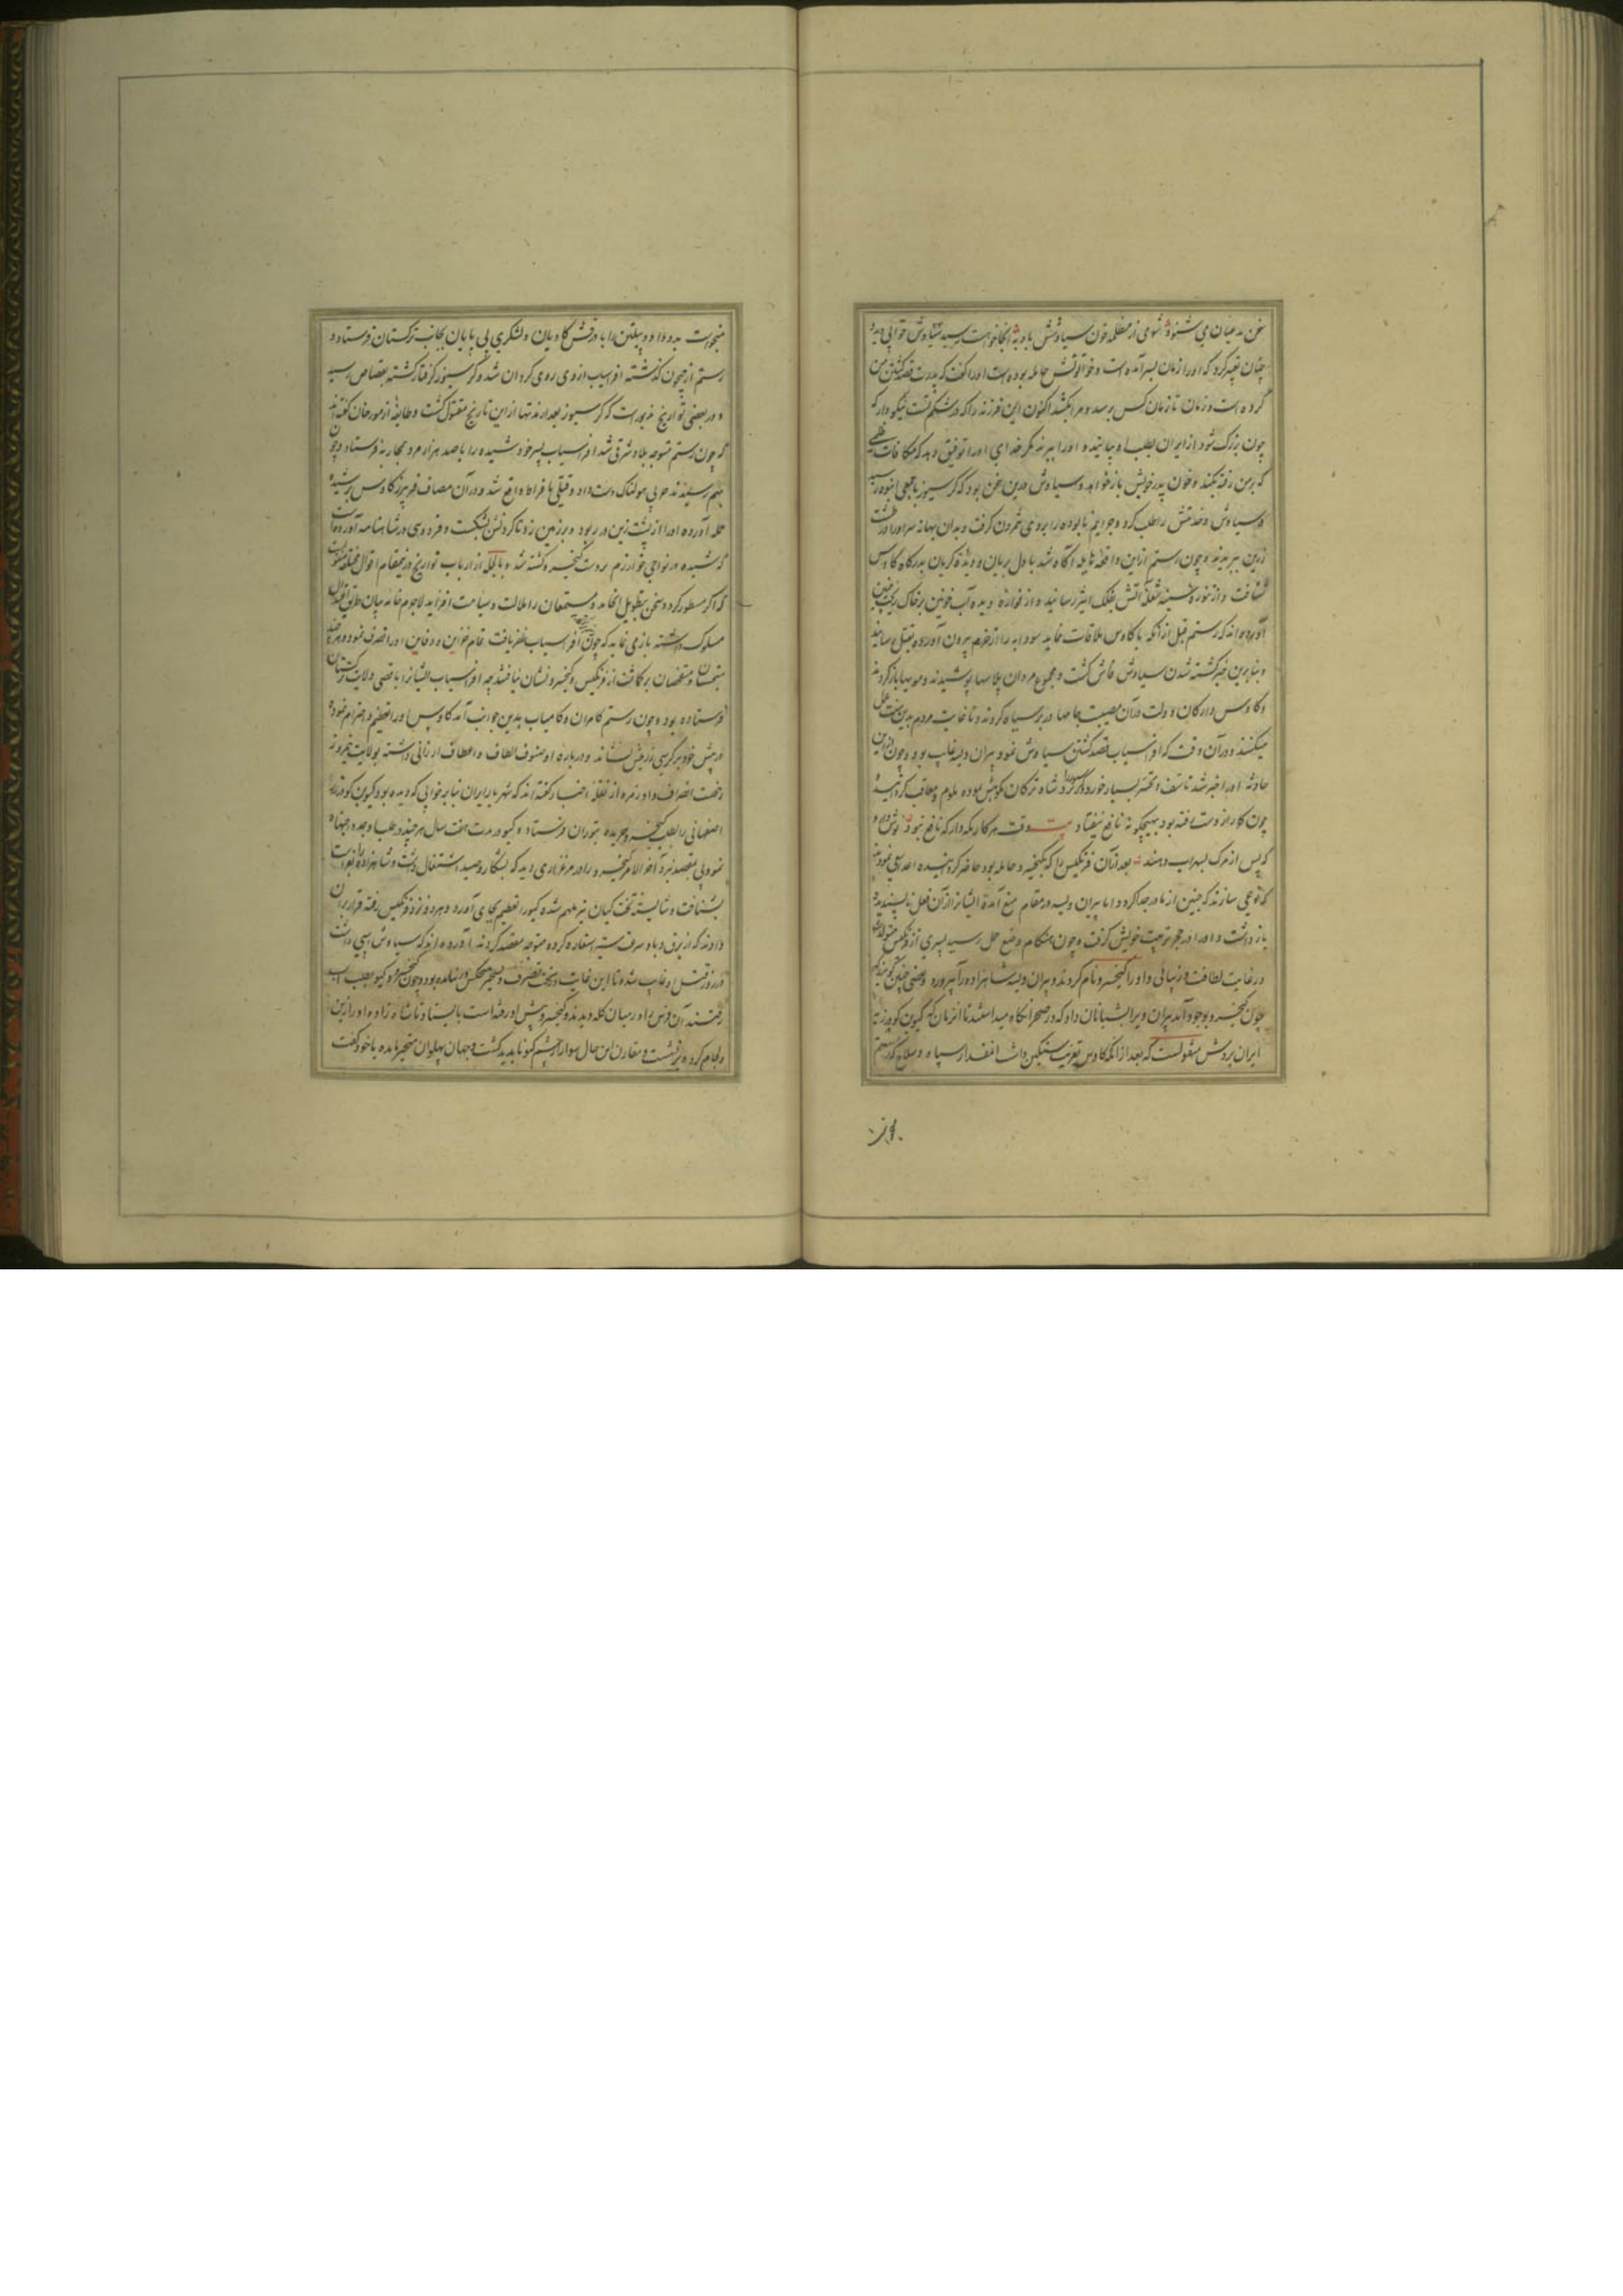 سخن مدعیان می شنود شومی از مظلمه خون سیاوشش بادو به انجا خواست رسید سیاوش خوابی دیده
چنان تعبیر کرد که او را زمان بسر آمده است و خواتونش حامله بوده است او را گفت که پدرت قصد کشتن من
کرده است و زمان تا زمان کس برسد و مرا بکشد اکنون این فرزند را که در شکم تست نیکو دار که
چون بزرگ شود از ایران بطلب او بیایند و او را ببرند مگر خدای او را توفیق دهد که مکافات ظلمی
که بر من رفته بکند و خون پدر خویش باز خواهد و سیاوش درین سخن بود که کرسیوز با جمعی انبوه رسید
و سیاوش را طلب کرد و جرایم نابوده را بروی شمردن گرفت و بدان بهانه سر او را در طشت
زرین ببریدند و چون رستم ازین واقعه هایله آگاه شد با دل بریان و دیده گریان بدرگاه کاوس
شتافت و از تنوره سینه شعله آتش بفلک اثیر رسانید و از فواره دیده آب خونین بر خاک ریخت
آورده اند که رستم قبل از آنکه با کاوس ملاقات نماید سودابه را از حرم بیرون آورده بقتل رسانید
و بنابرین خبر کشته شدن سیاوش فاش گشت و مجموع مردان پلاسها پوشیدند و مویها باز کردند
و کاوس و ارکان دولت در آن مصیبت جامها در بر سیاه کردند و تا غایت مردم بدین سنت عمل
میکنند و در آن وقت که افراسیاب قصد کشتن سیاوش نمود پیران ویسه غایب بود و چون ازین
حادثه او را خبر شد تاسف و تحسر بسیار خورد و شاه ترکان نکوهش نموده ملوم و معاقب گردانید
چون کار از دست رفته بود بهیچگونه نافع نیفتاد بیت وقت هر کار نگه دار که نافع نبود نوش دارو
که پس از مرگ بسهراب دهند بعد از آن فرنگیس را که بکیخسرو حامله بود حاضر کردانیده
که نوعی سازند که جنین از مادر جدا گردد اما پیران ویسه در مقام منع آمده ایشانرا از آن فعل ناپسندیده
باز داشت و او را در حجر تربیت خویش گرفت و چون هنگام وضع حمل رسید پسری از فرنگیس متولد شد
در غایت لطافت و زیبائی و او را کیخسرو نام کردند و پیران ویسه شاهزاده را میپرورد و بعضی چنین گویند که
چون کیخسرو بوجود آمد پیران ویرا بشبانان داد که در صحرا نگاه میداشتند تا آنزمان که گیو بن گودرز به
ایران بردش منقولست که بعد از آنکه کاوس تعزیت سنگین داشت انقدر از سپاه و سلاح که رستم
میخواست بدو داد و پیلتن را با درفش کاویان و لشکری بی پایان بجانب ترکستان فرستاد و
رستم از جیحون گذشته افراسیاب از وی روی گردان شد و کرسیوز گرفتار گشته بقصاص رسید
و در بعضی تواریخ مزبور است که کرسیوز بعد از مدتها از این تاریخ مقتول گشت و طایفه از مورخان گفته اند
که چون رستم متوجه بلاد شرقی شد افراسیاب پسر خود شیده را با صد هزار مرد بمحاربه فرستاد و چون
بهم رسیدند حربی هولناک دست داد و قتلی بافراط واقع شد و در آن مصاف فریبرز کاوس بر شیده
حمله آورده او را از پشت زین در ربود و بر زمین زد تا گردنش بشکست و فردوسی در شاهنامه آورده است
که شیده در نواحی خوارزم بر دست کیخسرو کشته شد و بالجمله از ارباب تواریخ درینمقام اقوال مختلفه منقولست
که اگر مسطور گردد سخن بتطویل انجامد و مستمعان را ملالت و سامت افزاید لاجرم خامه بیان طریق اختصار
مسلوک داشته باز می نماید که چون بر افراسیاب ظفر یافت تمام خزاین و دفاین او را تصرف نموده هر چند
متجسسان و متفحصان بر گماشت از فرنگیس و کیخسرو نشان نیافتند چه افراسیاب ایشانرا باقصی ولایت ترکستان
فرستاده بود و چون رستم کامران و کامیاب بدین جوانب آمد کاوس او را تعظیم و احترام نموده
در پیش خود بر کرسی زرینش بنشاند و درباره او صنوف الطاف و اعطاف ارزانی داشته بولایت نیمروز
رخصت انصراف داد و زمره از نقله اخبار گفته اند که شهریار ایران بنابر خوابی که دیده بود گیو بن گودرز
اصفهانی را بطلب کیخسرو جریده بتوران فرستاد و گیو در مدت هفت سال هر چند در طلب او جد و جهد
نمود پی بمقصد نبرد آخر الامر کیخسرو را در مرغزاری دید که بشکار و صید اشتغال داشت و شاهزاده را
بشناخت و شایسته تخت کیان نیز ملهم شده گیو را تعظیم بجای آورد و هر دو نزد فرنگیس رفته قرار بران
دادند که از برق و باد سرعت سیر استعاره کرده متوجه مقصد گردند آورده اند که سیاوش اسپی داشت
در روز قتل او غایب شده تا این غایت در تحت تصرف و تسخیر هیچکس در نیامده بود و چون کیخسرو و گیو بطلب اسب
رفتند آن فرس را در میان گله دیدند و کیخسرو پیش او رفته است بایستاد تا شاه زاده او را زین
و لجام کرده بر نشست و مقارن این حال سوار از چشم گیو ناپدید گشت و جهان پهلوان متحیر مانده با خود گفت